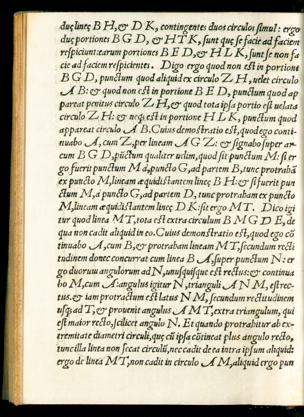 duę lineę BH, & DK, contingentes duos circulos simul: ergo
duę portiones BGD, & HTK, sunt quę se facie ad faciem
respiciunt: earum portiones BED, & HLK, sunt se non fa
cie ad faciem respicientes. Digo ergo quod non est in portione
BGD, punctum aliquid ex circulo ZH, uel et circulo
AB: & quod non est in portione BED, punctum quod ap
pareat penitus circulo ZH, & quod tota ipsa portio est uelata
circulo ZH: & neq; est in portione HLK, punctum quod
appareat circulo AB. Cuius demonstratio est, quod ego conti
nuabo A, cum Z, per lineam AGZ: & signabo super ar-
cum BGD, pūctum qualiter uelim, quod sit punctum M: si er
go fuerit punctum M à, puncto G, ad partem B, tunc protrahā
ex puncto M, lineam ęquidistantem lineę BH: & si fuerit pun
ctum M, à puncto G, ad partem D, tunc protrahā ex puncto
M, lineam ęquidistantem lineę DK: sit ergo MT. Dico igi
tur quod linea MT, tota est extra circulum BMGDE, de
qua non cadit aliquid in eo. Cuius demonstratio est, quod ego cō
tinuabo A, cum B, & protraham lineam MT, secundum recti
tudinem donec concurrat cum linea BA, super punctum N: er
go duorum angulorum ad N, unusquisque est rectus: & continua
bo M, cum A: angulus igitur N, trianguli ANM, est rec-
tus. & iam protractum est latus NM, secundum rectitudinem
usq; ad T, & prouenit angulus AMT, extra triangulum, qui
est maior recto, scilicet angulo N. Et quando protrahitur ab ex-
tremitate diametri circuli, quę cū ipsa cōtineat plus angulo recto,
tunc illa linea non secat circulū, nec cadit de ea intra ipsum aliquid:
ergo de linea MT, non cadit in circulo AM, aliquid ergo pun